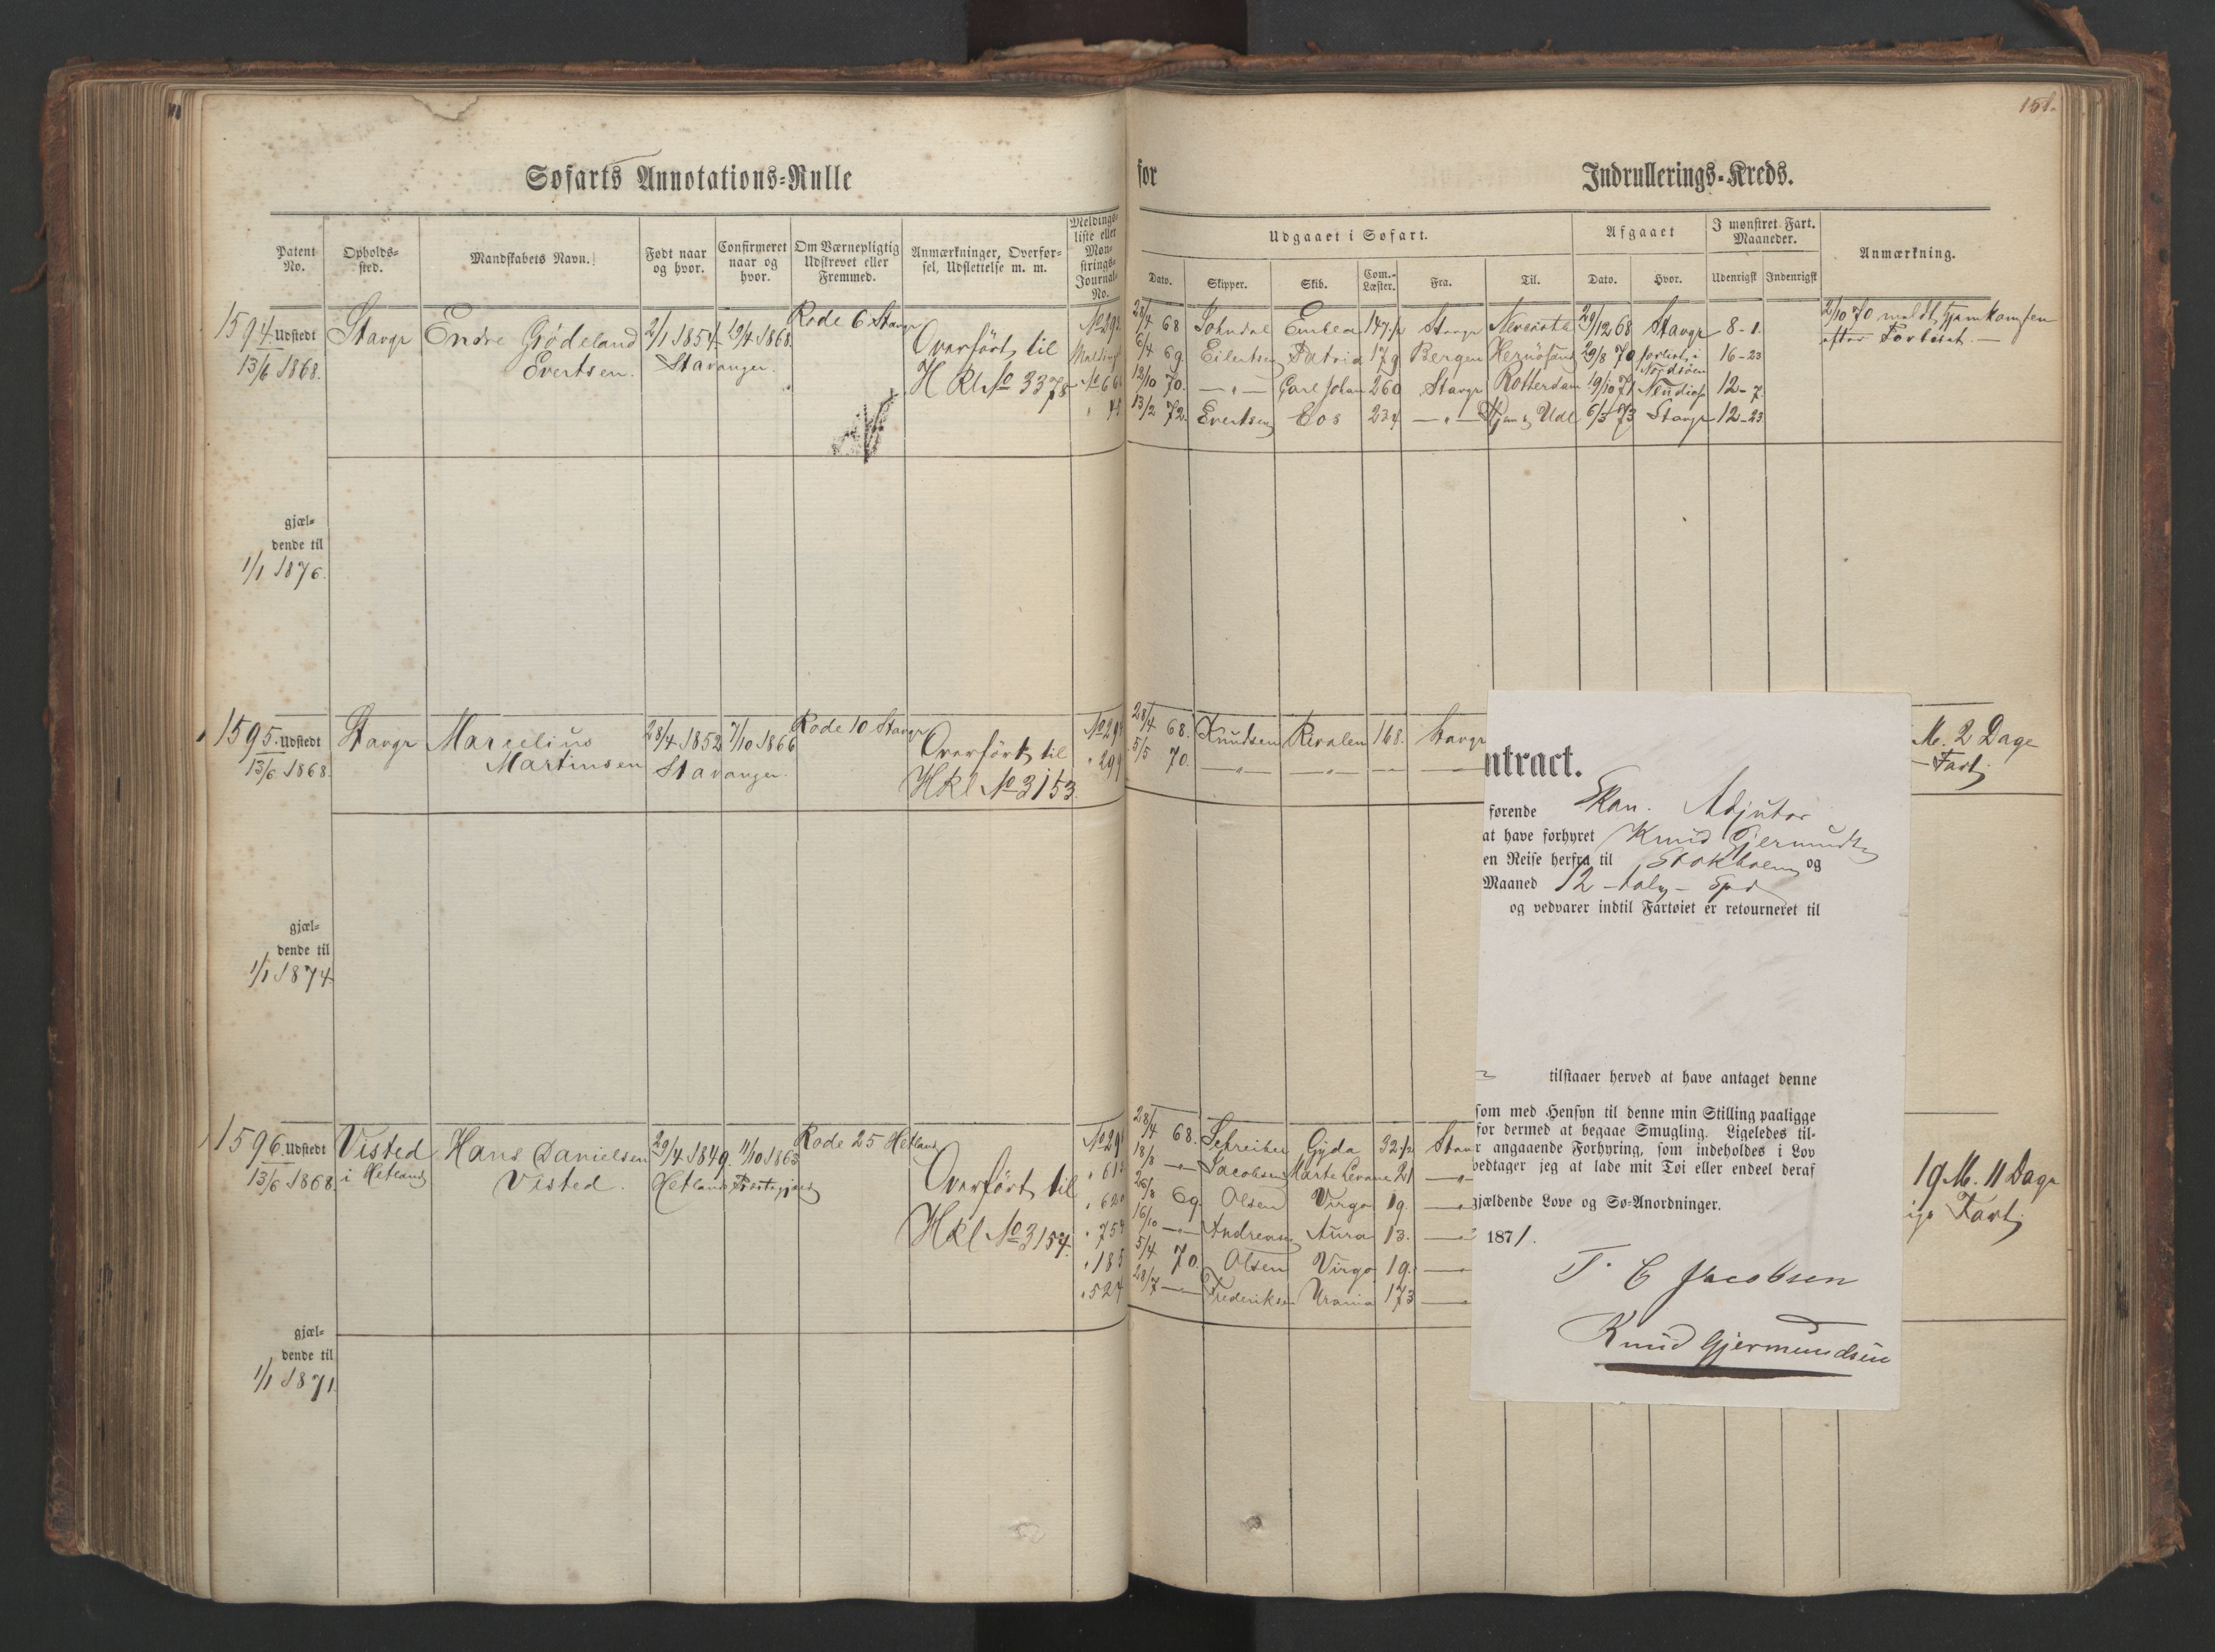 151.
Søfarts Annotations-Rulle
for
Indrullerings-Kreds.
Patent No.
Opholds-sted.
Mandskabets Navn.
Født naar og hvor.
Confirmeret naar og hvor.
Om Værnepligtig Udskrevet eller Fremmed.
Anmærkninger, Overførsel, Udslettelse m. m.
Meldings-liste eller Mønstrings-Journal-No.
Udgaaet i Søfart.
Dato.
Skipper.
Skib.
Com.-Læster.
Fra.
Til.
Afgaaet
Dato.
Hvor.
I mønstret Fart. Maaneder.
Udenrigst
Indenrigst
Anmærkning.
1594. Udstedt Stavgr Endre Grödeland 2/1 1854 19/4 1868 Rode 6 Stavgr
13/6 1868. Evertsen. Stavanger.
Overfört til
H Kl No 3378
28/4 68 Emblea Stavgr 29/12 68 Stavgr 8-1.
6/4 69 Eilertsen Patria 179 Bergen Hernösand 29/8 70 forlist i Nordsöen 16-23
12/10 70. —"— Carl Johan 260 Stavgr Rotterdam 19/10 71 12-7
13/2 72. Evertsen Eos 234 —"— 6/3 73 Stavgr 12-23
2/10 70 meldt Hjemkomsten
efter Forliset. —
gjæl-
dende til
1/1 1876.
1595. Udstedt Stavgr Marcelius 28/4 1852 7/10 1866 Rode 10 Stavgr
13/6 1868. Martinsen Stavanger.
Overfört til
HKl No 3153.
28/4 68. Knudsen 168. Stavgr
5/5 70. —"— —"— — —
M. 2 Dage
Fart
gjæl-
dende til
1/1 1874
1596. Udstedt Visted Hans Danielsen 29/4 1849. 11/10 1863 Rode 25 Hetland
13/6 1868. i Hetland Visted. Hetland Præstegjeld
Overfört til
HKl No 3154.
28/4 68. Schreiber Gyda 32 1/2
18/8 —"— Jacobsen 21
26/8 69. Olsen Virgo 19.
16/10 —"— Andreasen Aura 13.
5/4 70. Olsen Virgo 19.
28/7 —"— Frederiksen Urania 173
19 M. 11 Dage
Fart
gjæl-
dende til
1/1 1871
ntract.
førende Skon. Adjutor
at have forhyret Knud Gjermunds
en Reise herfra til Stokholm og
Maaned 12 - tolv - Spd
og vedvarer indtil Fartøiet er retourneret til
tilstaaer herved at have antaget denne
som med Hensyn til denne min Stilling paaligge
for dermed at begaae Smugling. Ligeledes til-
r angaaende Forhyring, som indeholdes i Lov
vedtager jeg at lade mit Tøi eller endeel deraf
gjældende Love og Sø-Anordninger.
1871.
T. C Jacobsen
Knud Gjermundsen